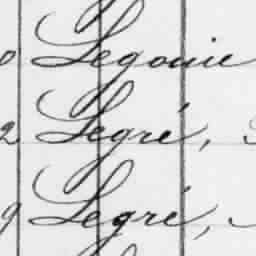 0 Legouie
2 Legré,
9 Legré,